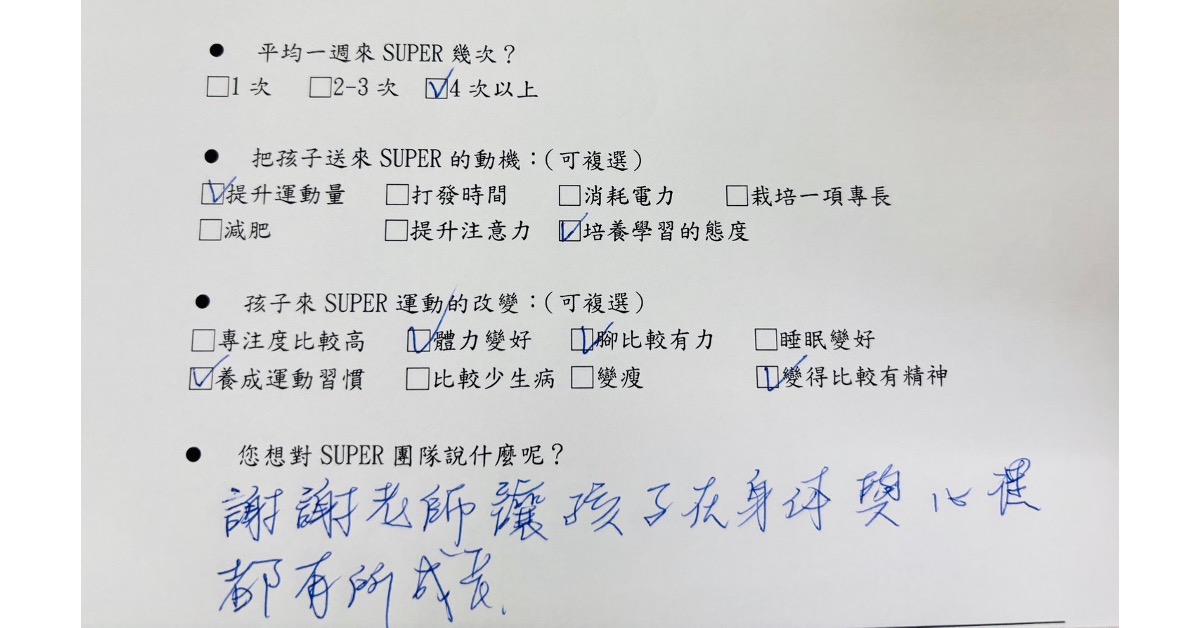 ● 平均一週來 SUPER 幾次？
□1 次 □2-3 次 ☑4 次以上
● 把孩子送來 SUPER 的動機：(可複選)
☑提升運動量 □打發時間 □消耗電力 □栽培一項專長
□減肥 □提升注意力 ☑培養學習的態度
● 孩子來 SUPER 運動的改變：(可複選)
□專注度比較高 ☑體力變好 ☑腳比較有力 □睡眠變好
☑養成運動習慣 □比較少生病 □變瘦 ☑變得比較有精神
● 您想對 SUPER 團隊說什麼呢？
謝謝老師讓孩子在身体與心裡
都有所成長.